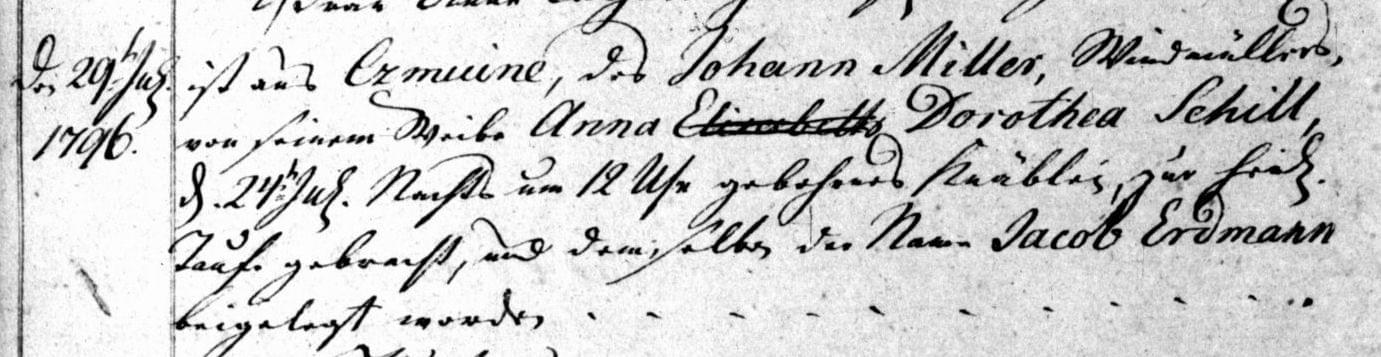 den 29t. July. ist aus Czmuine, des Johann Miller, Windmüllers,
1796. von seinem Weibe Anna Elisabeth Dorothea Schill,
d. 24t July. Nachts um 12 Uhr gebohrnes Knäblein, zur heil.
Taufe gebracht, und demselben der Name Jacob Erdmann
beigelegt worden . - - - - - - - - - - . .